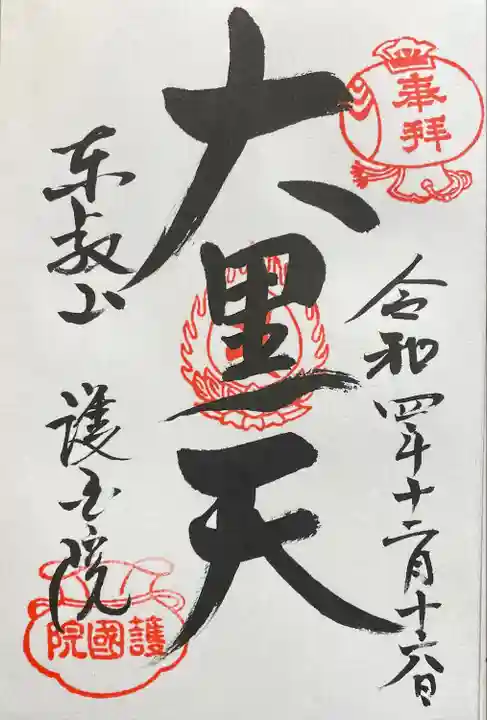 奉拝
令和四年十二月十六日
大黒天
東叡山 護国院
護國院